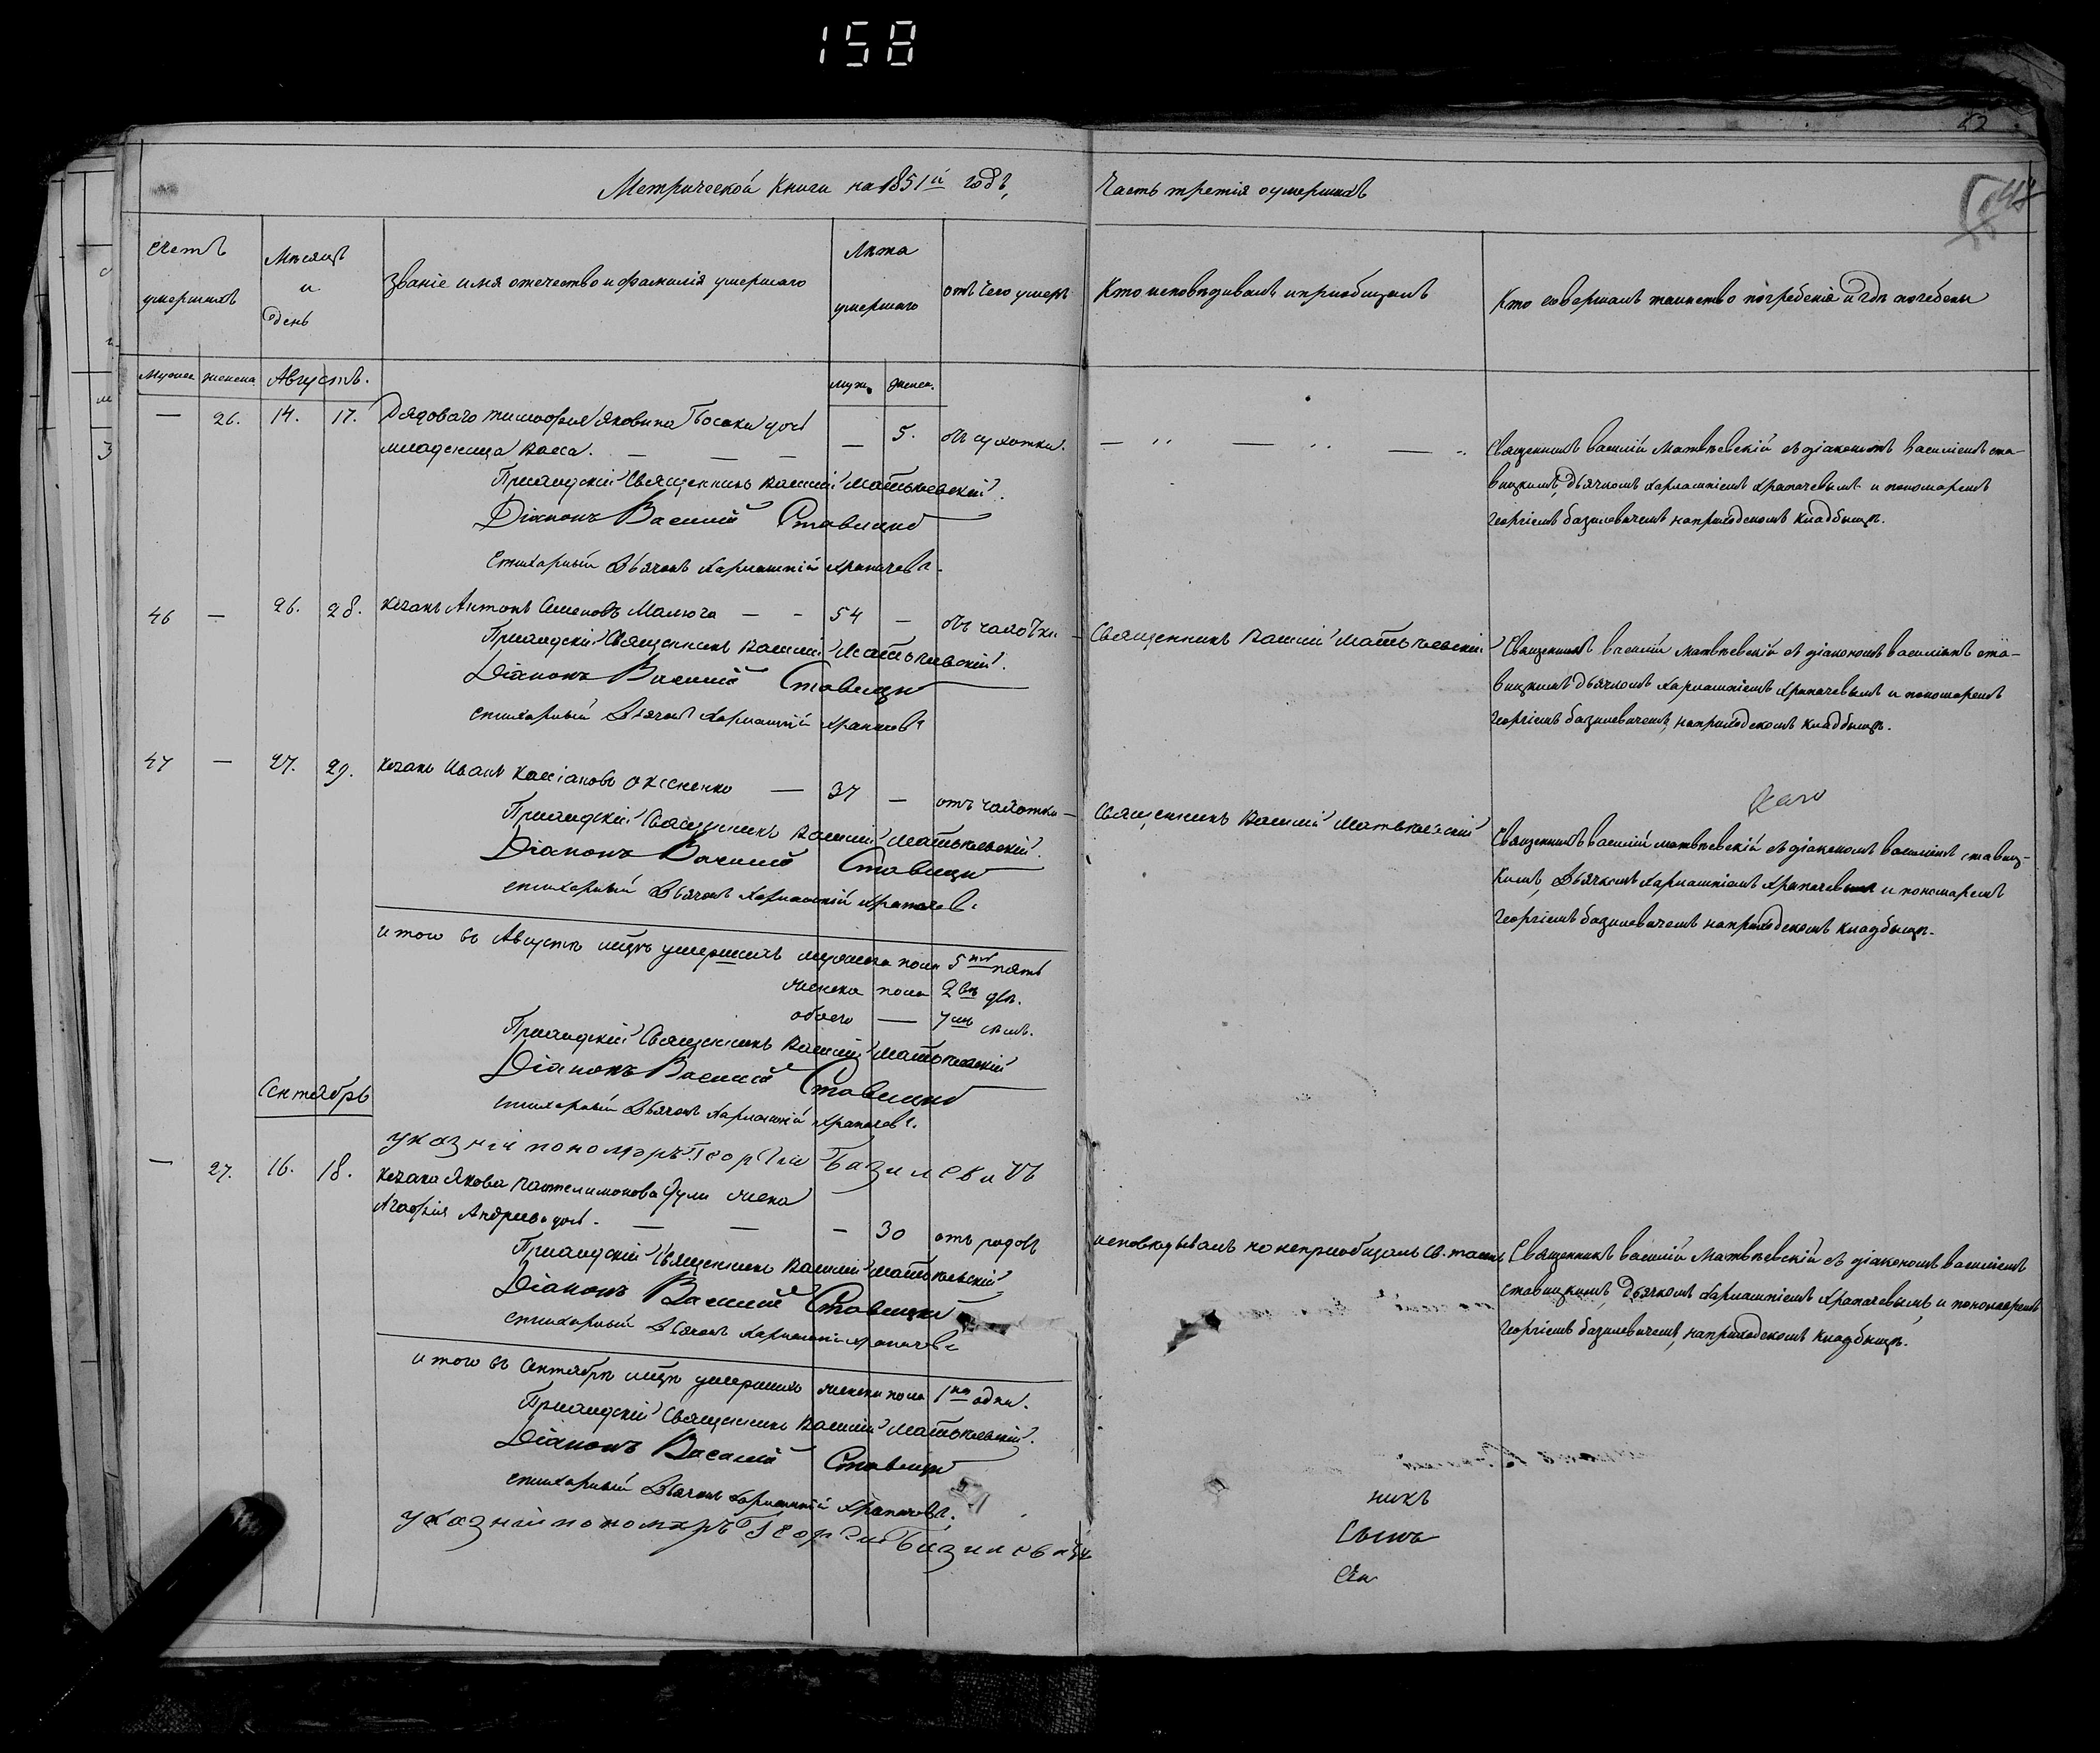 158
Метрической Книги на 1851й годъ,
Часть третія о умершихъ
Счетъ умершихъ
Мѣсяцъ и день
Званіе имя отечество и фамилія умершаго
Лѣта умершаго
отъ чего умеръ
Кто исповѣдивалъ и приобщалъ
Кто совершалъ таинство погребенія и гдѣ погебены
Мужеска женска Августъ.
муж. женск.
— 26. 14. 17. Рядоваго Тимофія Яковина дочь
младеница Васса. — — — — 5. отъ сухотки.
Священникъ Василій Матвѣевскій съ діакономъ Василіемъ Ста-
вицкимъ, дьячкомъ Харлампіемъ Храпачевымъ и пономаремъ
Георгіемъ Базилевичемъ на приходскомъ кладбищѣ.
Приходскій Священникъ Василій Матвѣевскій.
Діаконъ Василій Ставицкій
Стихарный Дьячокъ Харлампій Храпачевъ.
46 — 26. 28. Козакъ Антонъ Семеновъ Малюга — - 54 — отъ чахотки —
Священникъ Василій Матвѣевскій
Священникъ Василій Матвѣевскій съ діакономъ Василіемъ Ста-
вицкимъ дьячкомъ Харлампіемъ Храпачевымъ и пономаремъ
Георгіемъ Базилевичемъ, на приходскомъ кладбищѣ.
Приходскій Священникъ Василій Матвѣевскій.
Діаконъ Василій Ставицкій
стихарный Дьячокъ Харлампій Храпачевъ
47 — 27. 29. Козакъ Иванъ Касіановъ — 37 — отъ чахотки —
Священникъ Василій Матвѣевскій
Священникъ Василій Матвѣевскій съ діакономъ Василіемъ Ставиц-
кимъ, Дьячкомъ Харлампіемъ Храпачевымъ и пономаремъ
Георгіемъ Базилевичемъ на приходскомъ кладбищѣ.
Приходскій Священникъ Василій Матвѣевскій.
Діаконъ Василій Ставицкій
стихарный Дьячокъ Харлампій Храпачевъ.
итого въ Августѣ умершихъ мужеска пола 5ть пять
женска пола 2вѣ двѣ.
обоего — 7мь семь.
Приходскій Священникъ Василій Матвѣевскій
Діаконъ Василій Ставицкій
стихарный Дьячокъ Харлампій Храпачевъ.
указній пономаръ Георгій Базилевичъ
Сентябрь
— 27. 16. 18. Козака Якова Пантелимонова жена
Агафія Андреева дочь. — — — 30 отъ родовъ
исповѣдывалъ но неприобщалъ св. таинъ
Священникъ Василій Матвѣевскій съ діакономъ Василіемъ
Ставицкимъ, дьячкомъ Харлампіемъ Храпачевымъ, и пономаремъ
Георгіемъ Базилевичемъ, на приходскомъ кладбищѣ.
Приходскій Священникъ Василій Матвѣевскій
Діаконъ Василій Ставицкій
стихарный Дьячокъ Харлампій Храпачевъ
итого въ Сентябрѣ умершихъ женска пола 1на одна.
Приходскій Священникъ Василій Матвѣевскій.
Діаконъ Василій Ставицкій
стихарный Дьячокъ Харлампій Храпачевъ.
указній пономаръ Георгій Базилевичъ
никъ